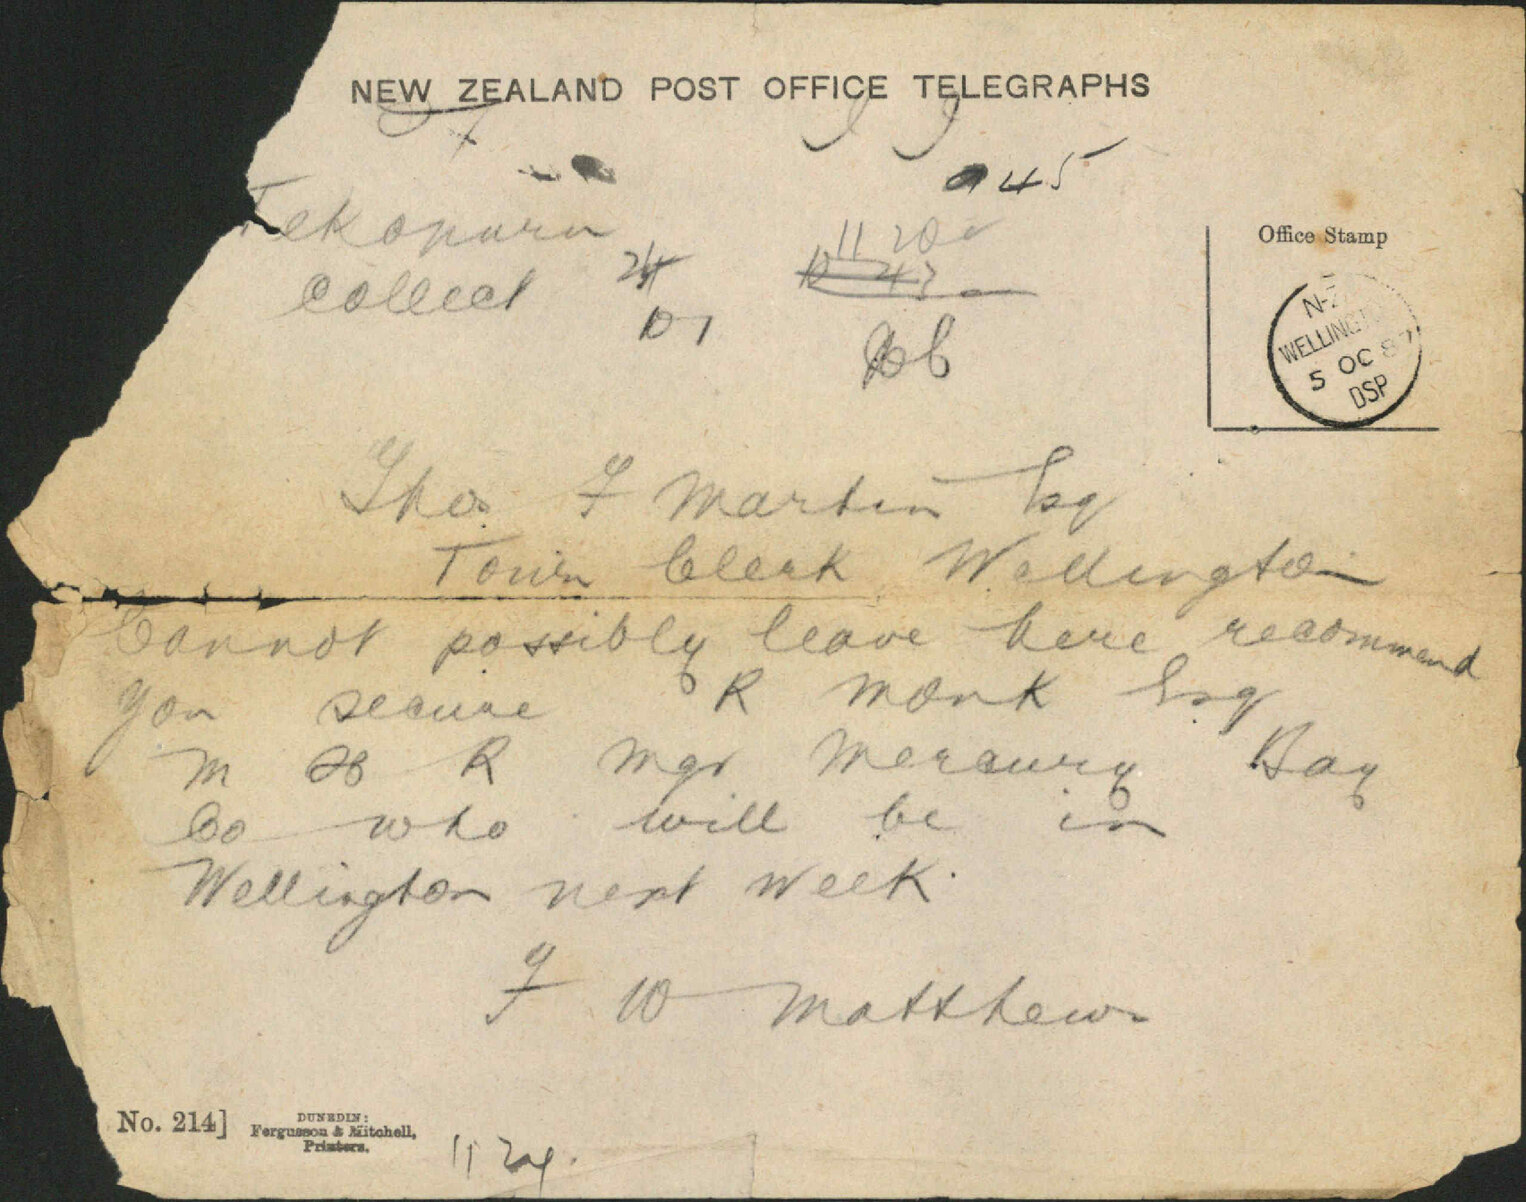 NEW ZEALAND POST OFFICE TELEGRAPHS
45
Tekopuru
11 20
Collect
Office Stamp
N-Z
WELLINGTON
5 OC 87
DSP
Thos F Martin Esq
Town Clerk Wellington
Cannot possibly leave here recommend
you secure R Monk Esq
M H R Mgr Mercury Bay
Co who will be in
Wellington next week.
F W Matthews
No. 214]
DUNEDIN:
Fergusson & Mitchell,
Printers.